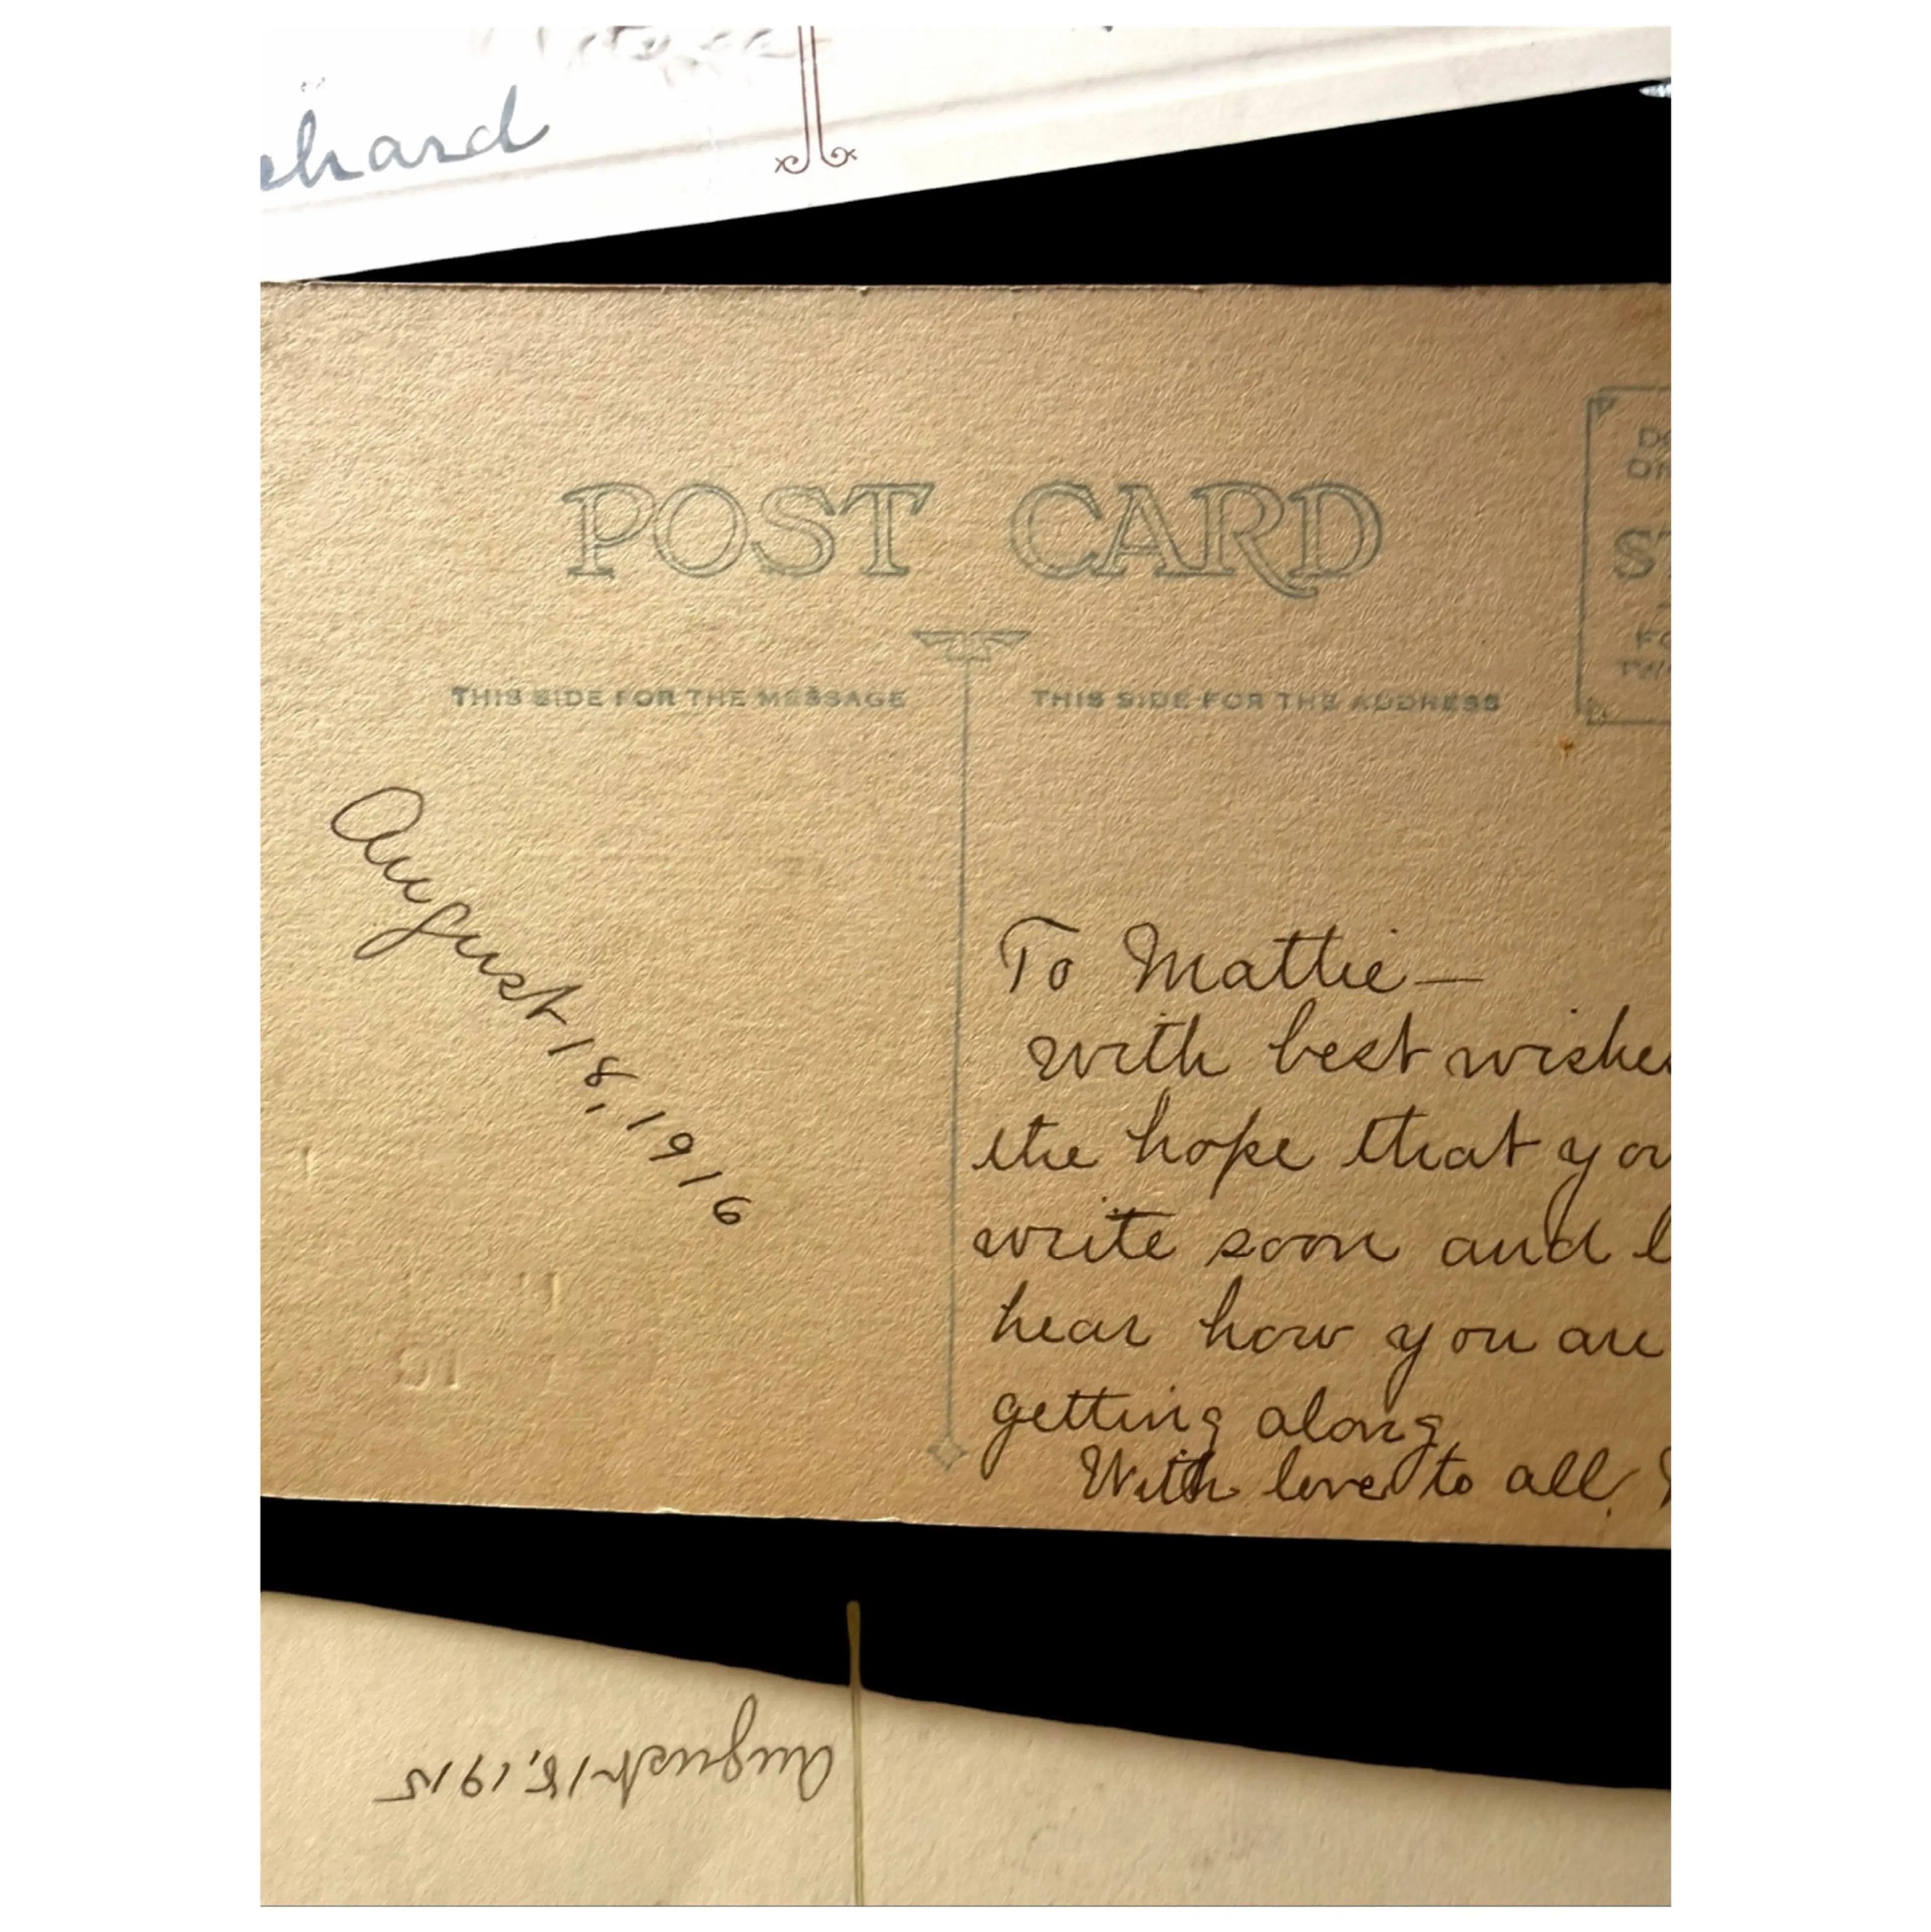 POST CARD
THIS SIDE FOR THE MESSAGE
THIS SIDE FOR THE ADDRESS
August 18, 1916
To Mattie—
with best
the hope that
write soon and
hear how you
getting along
With love to all,
August 18, 1915